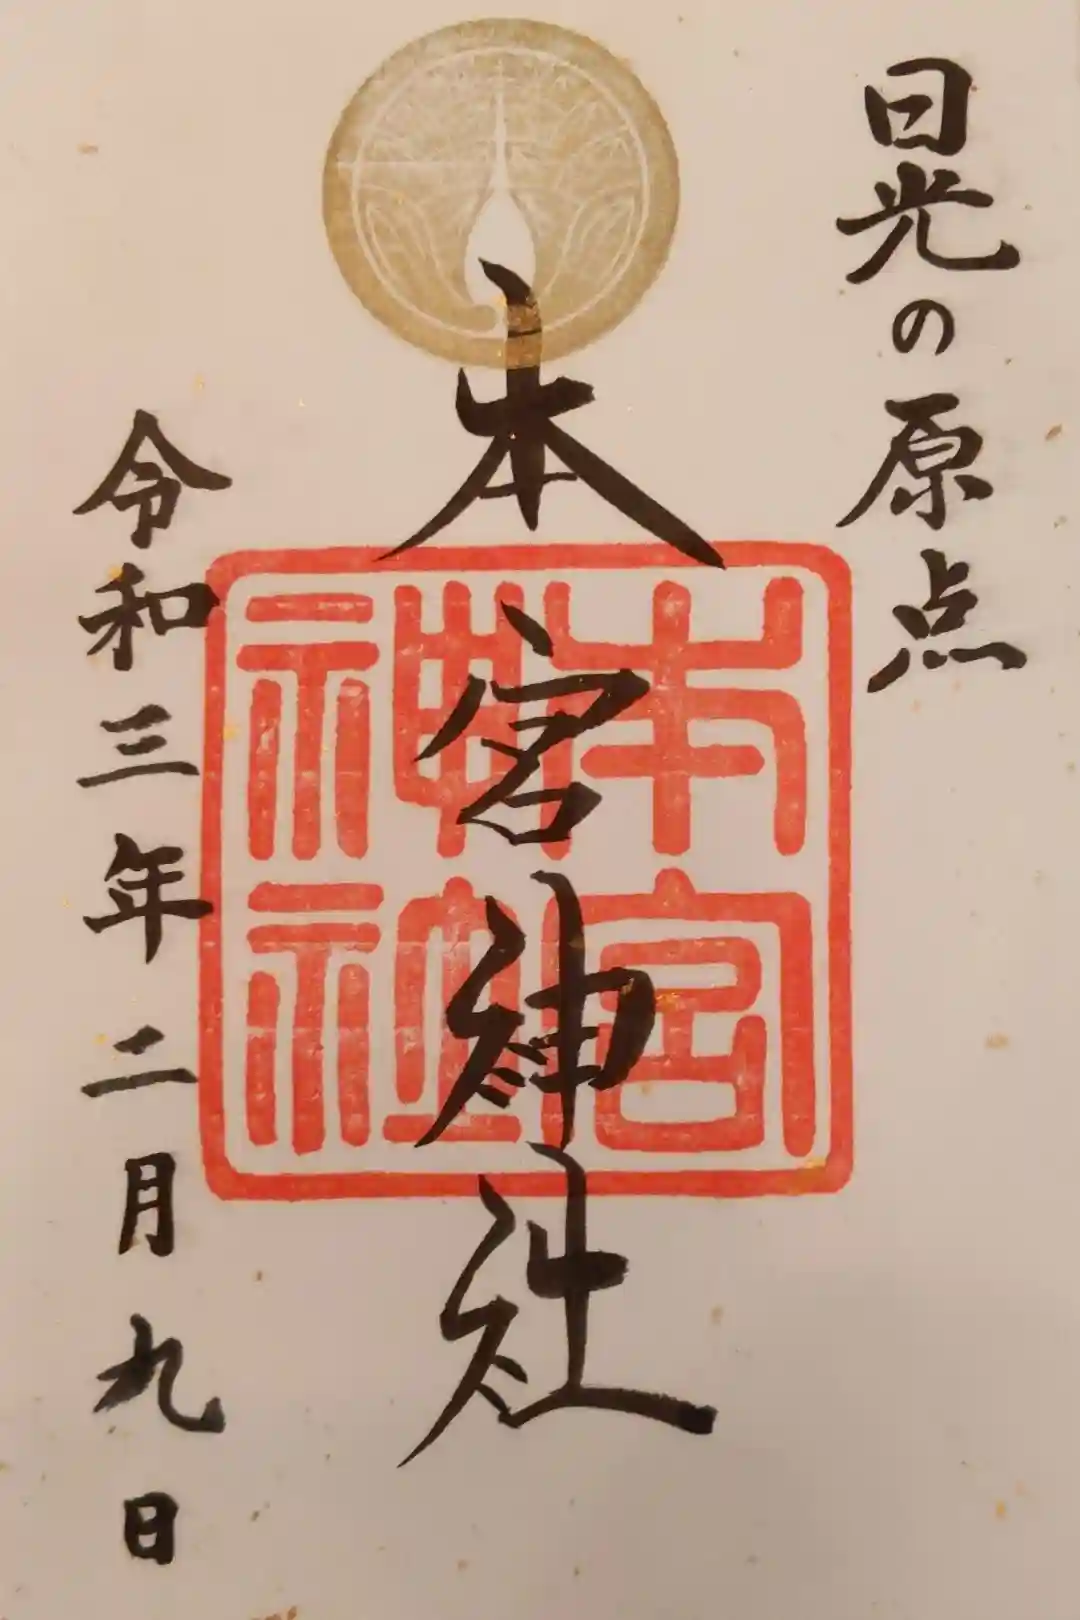 日光の原点
本宮神社
本宮神社
令和三年二月九日